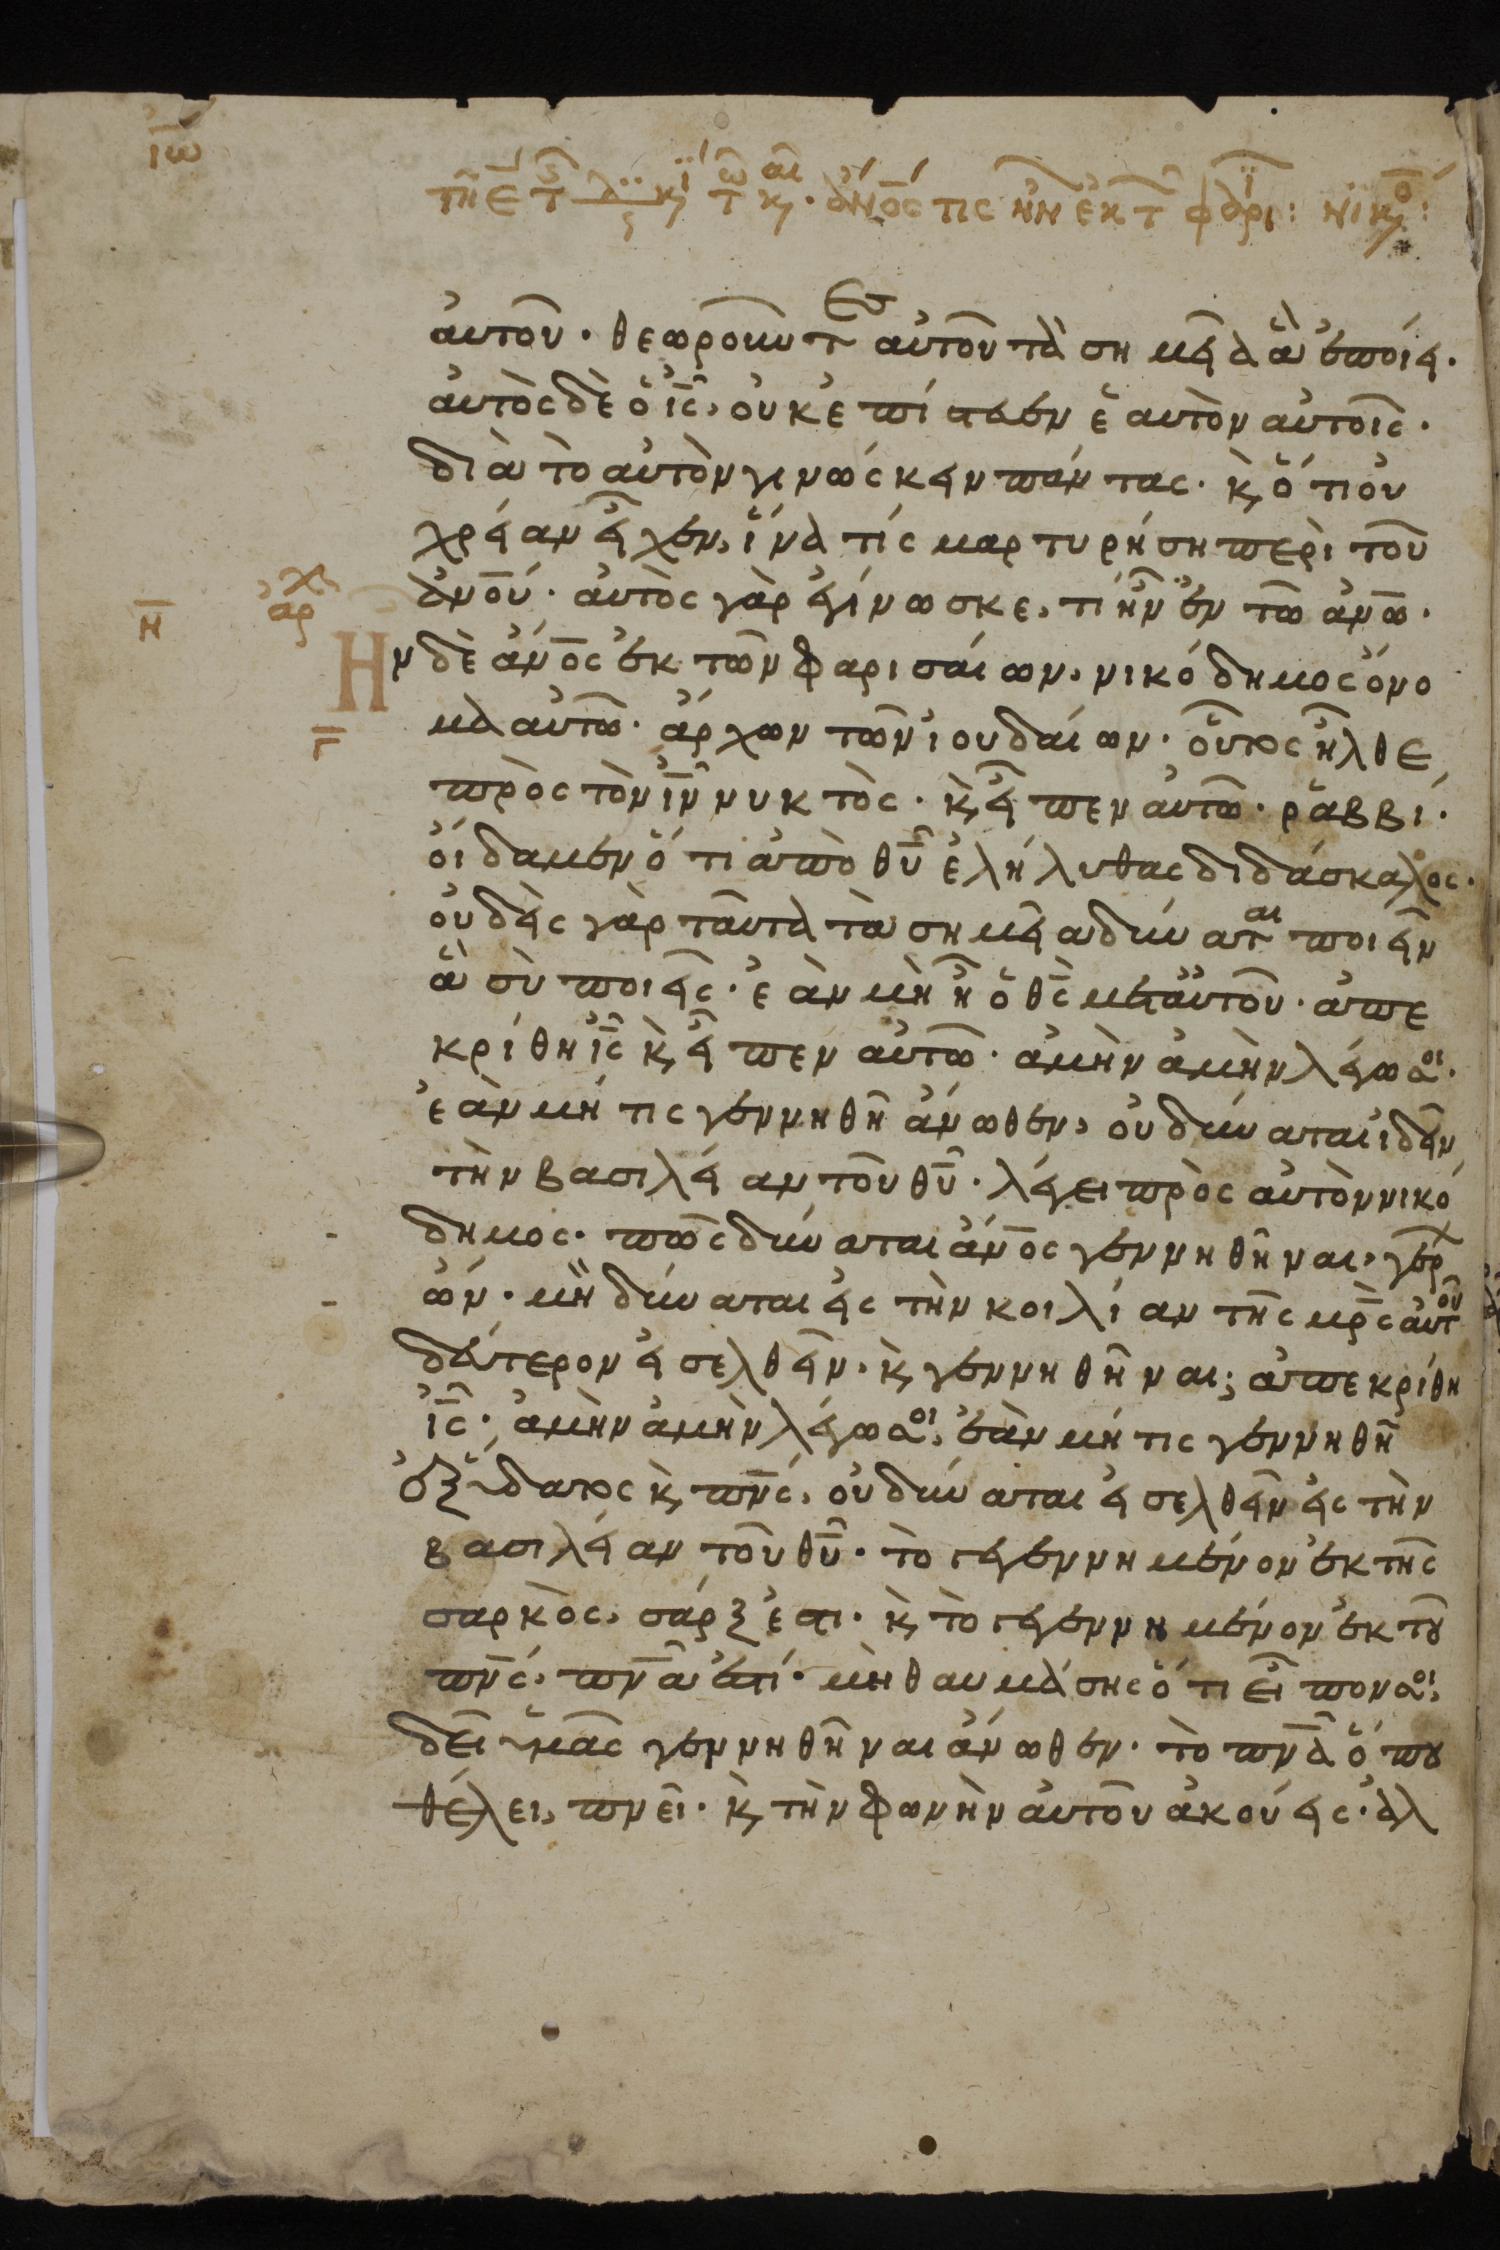 ἰω
τῆ ε τ κ τ κ · ἀνος τις ἦν ἐκ τ φαρι : νικο :
αὐτοῦ · θεωροῦντες αὐτοῦ τὰ σημεῖα ἃ ἐποίει ·
αὐτὸς δὲ ὁ ἰς, οὐκ ἐπίστευεν ἑαυτὸν αὐτοῖς ·
διὰ τὸ αὐτὸν γινώσκειν πάντας · κ, ὅτι οὐ
χρείαν εἶχεν, ἵνα τίς μαρτυρήση περὶ τοῦ
ἀνου · αὐτὸς γὰρ ἐγίνωσκε, τί ἦν ἐν τῶ ἀνω ·
η
αρχ
Ην δὲ ἄνος ἐκ τῶν φαρισαίων, νικόδημος ὄνο
γ
μα αὐτῶ · ἄρχων τῶν ἰουδαίων · οὗτος ἦλθε
πρὸς τὸν ἰν νυκτὸς · κ, εἶπεν αὐτῶ · ῥαββί ·
οἴδαμεν ὅτι ἀπὸ θυ ἐλήλυθας διδάσκαλος ·
οὐδεὶς γὰρ ταῦτα τὰ σημεῖα δύναται ποιεῖν
ἃ σὺ ποιεῖς · ἐὰν μὴ ἦ ὁ θς μετ αὐτοῦ · ἀπε
κρίθη ἰς κ, εἶπεν αὐτῶ · ἀμὴν ἀμὴν λέγω σοι ·
ἐὰν μή τις γεννηθῆ ἄνωθεν, οὐ δύναται ἰδεῖν
τὴν βασιλείαν τοῦ θυ · λέγει πρὸς αὐτὸν νικό
δημος · πῶς δύναται ἄνος γεννηθῆναι, γέρ
ων · μὴ δύναται εἰς τὴν κοιλίαν τῆς μρς αὐτοῦ
δεύτερον εἰσελθεῖν · κ, γεννηθῆναι; ἀπεκρίθη
ἰς · ἀμὴν ἀμὴν λέγω σοι, ἐὰν μή τις γεννηθῆ
ἐξ ὕδατος κ, πνς, οὐ δύναται εἰσελθεῖν εἰς τὴν
βασιλείαν τοῦ θυ · τὸ γεγεννημένον ἐκ τῆς
σαρκὸς, σάρξ ἐστι · κ, τὸ γεγεννημένον ἐκ τοῦ
πνς, πνα ἐστί · μὴ θαυμάσης ὅτι εἶπον σοι,
δεῖ ὑμᾶς γεννηθῆναι ἄνωθεν · τὸ πνα ὅπου
θέλει, πνεῖ · κ, τὴν φωνὴν αὐτοῦ ἀκούεις · ἀλ